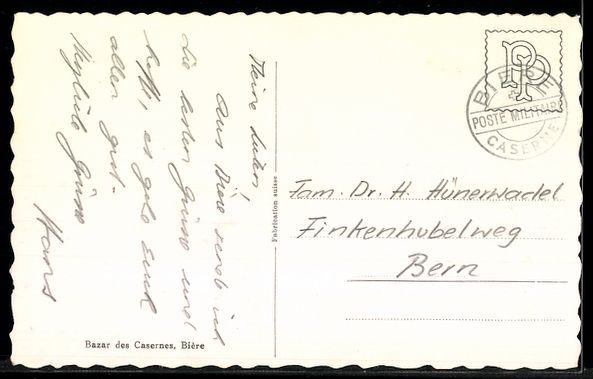 Meine Lieben!
Aus Bière send ich
die besten Grüsse und
hoff, es gehe Euch
allen gut.
Grüsse
Hans
Bazar des Casernes, Bière
Fabrication suisse
PP
BIÈRE
POSTE MILITAIRE
CASERNE
Fam. Dr. H. Hünerwadel
Finkenhubelweg
Bern